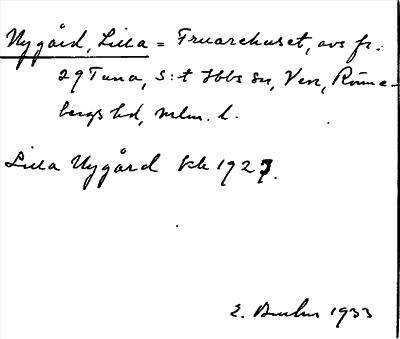 Nygård, Lilla = Fruarehuset, avs fr.
29 Tuna, S:t Ibbs sn, Ven, Rönne-
bergs hd, Mlm. l.
Lilla Nygård Ek 1927.
E. 1933